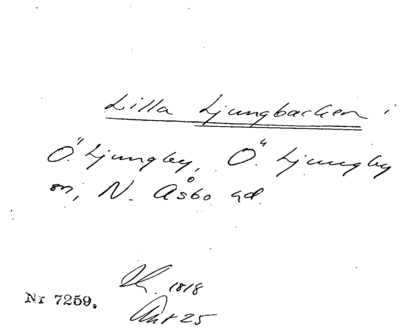 Lilla Ljungbacken i
Ö. Ljungby, Ö. Ljungby
sn, N. Åsbo hd.
1818
Nr 7259.
Akt 25